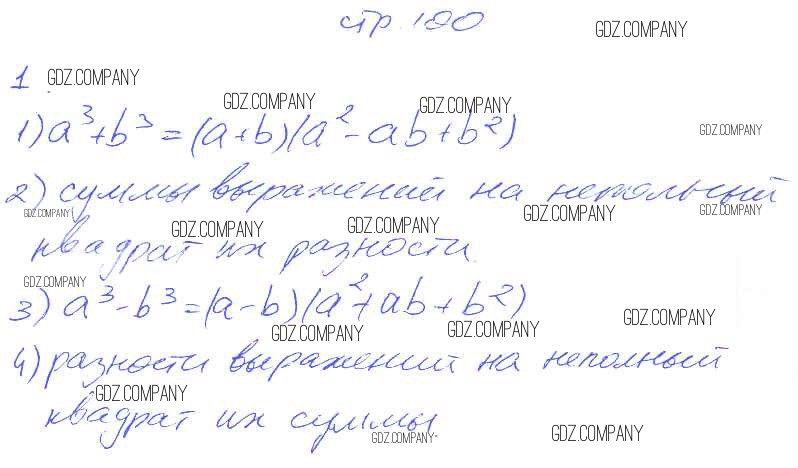 стр. 180
GDZ.COMPANY
1 GDZ.COMPANY
GDZ.COMPANY GDZ.COMPANY
1) a³+b³=(a+b)(a²-ab+b²) GDZ.COMPANY
2) суммы выражений на неполный
GDZ.COMPANY GDZ.COMPANY GDZ.COMPANY
GDZ.COMPANY GDZ.COMPANY
квадрат их разности.
GDZ.COMPANY
3) a³-b³=(a-b)(a²+ab+b²)
GDZ.COMPANY GDZ.COMPANY GDZ.COMPANY
4) разности выражений на неполный
GDZ.COMPANY
квадрат их суммы.
GDZ.COMPANY GDZ.COMPANY